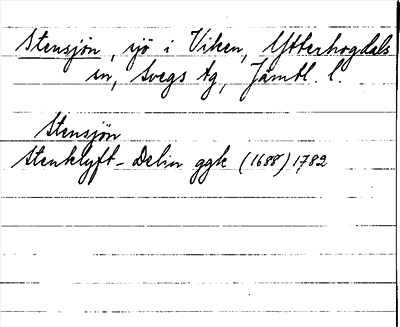 Stensjön, sjö i Viken, Ytterhogdals
sn, Svegs tg, Jämtl. l.
Stensjön
Stenklyft-Delin ggk (1688) 1782